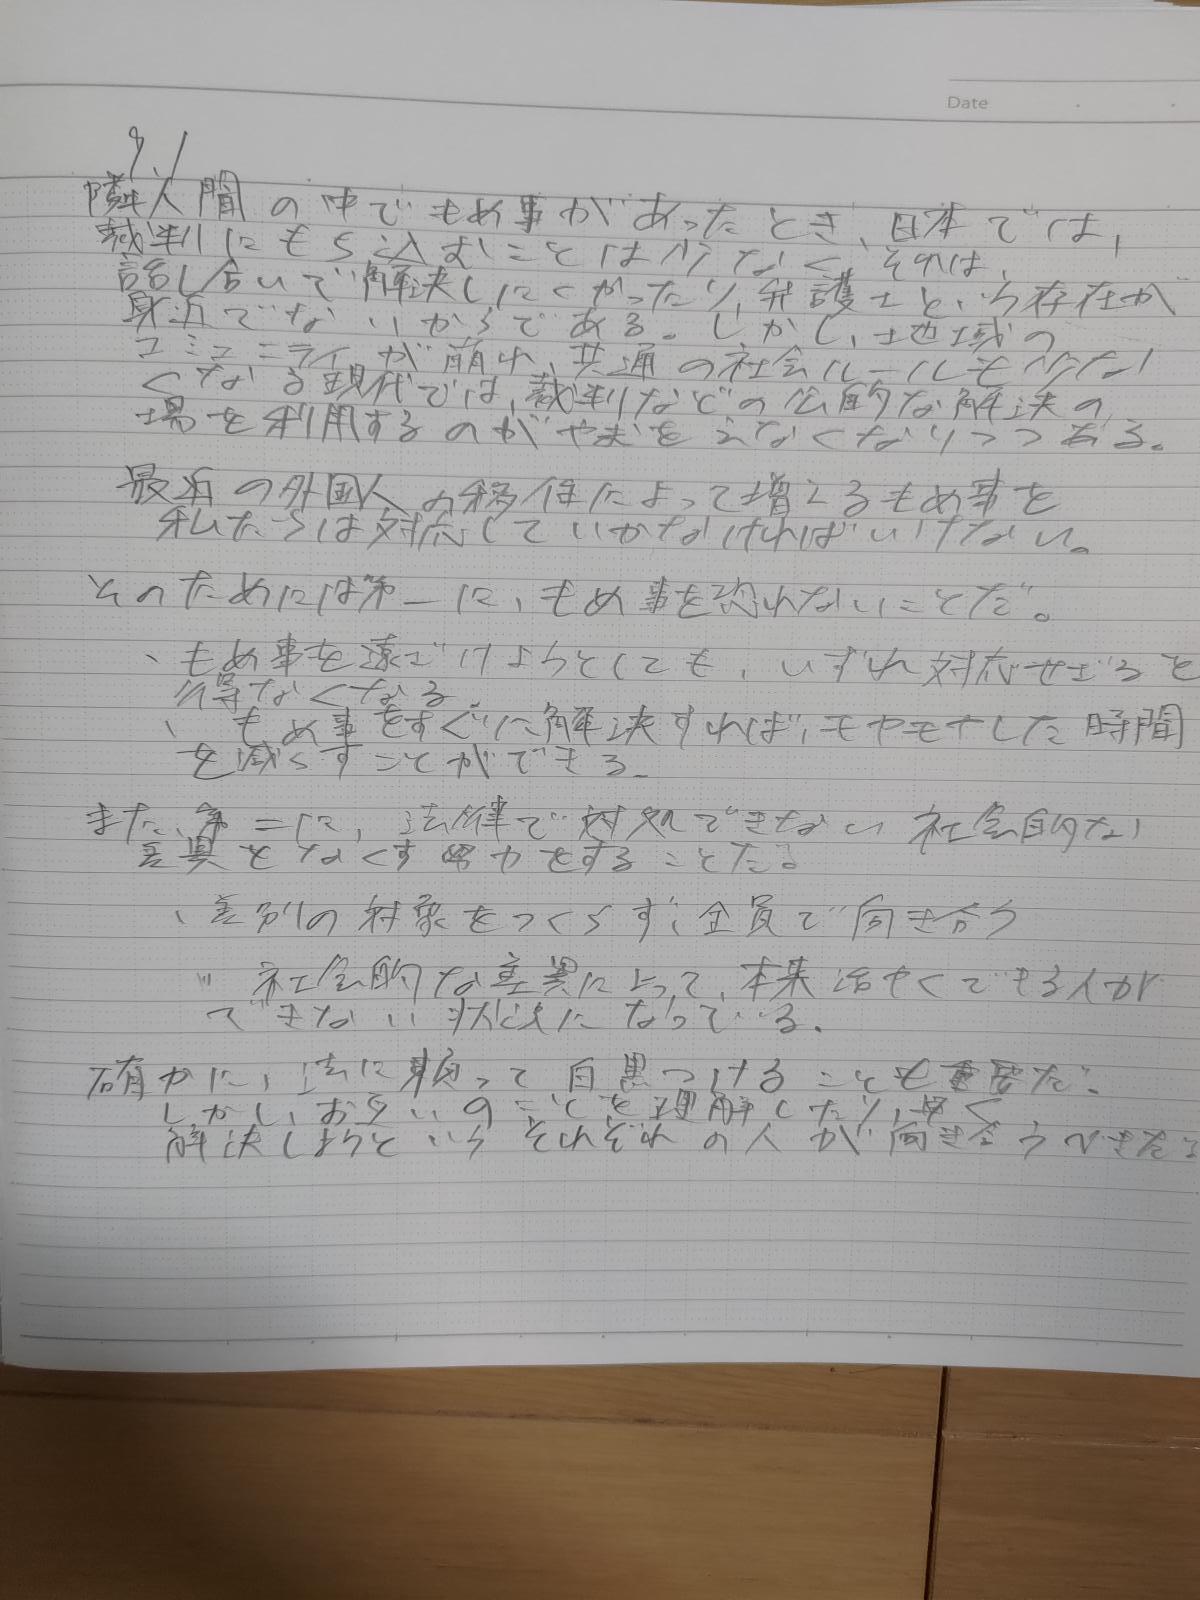 Date
9.1
隣人間の中でもめ事があったとき、日本では、
裁判にもち込むことは少なく、それは、
話し合いで解決しにくかったり、弁護士という存在が
身近でないからである。しかし、地域の
コミュニティが崩れ、共通の社会ルールも少な
くなる現代では、裁判などの公的な解決の
場を利用するのがやむをえなくなりつつある。
最近の外国人の移住によって増えるもめ事を
私たちは対応していかなければいけない。
そのためには第一に、もめ事を恐れないことだ。
、もめ事を遠ざけようとしても、いずれ対応せざるを
得なくなる。
、もめ事をすぐに解決すれば、モヤモヤした時間
を減らすことができる。
また、第二に、法律で対処できない社会的な
差異をなくす努力をすることだ。
、差別の対象をつくらず、全員で向き合う
〃 社会的な差異によって、本来活やくできる人が
できない状況になっている。
確かに、法に頼って白黒つけることも重要だ。
しかし、お互いのことを理解したり、早く
解決しようというそれぞれの人が向き合うべきだ。